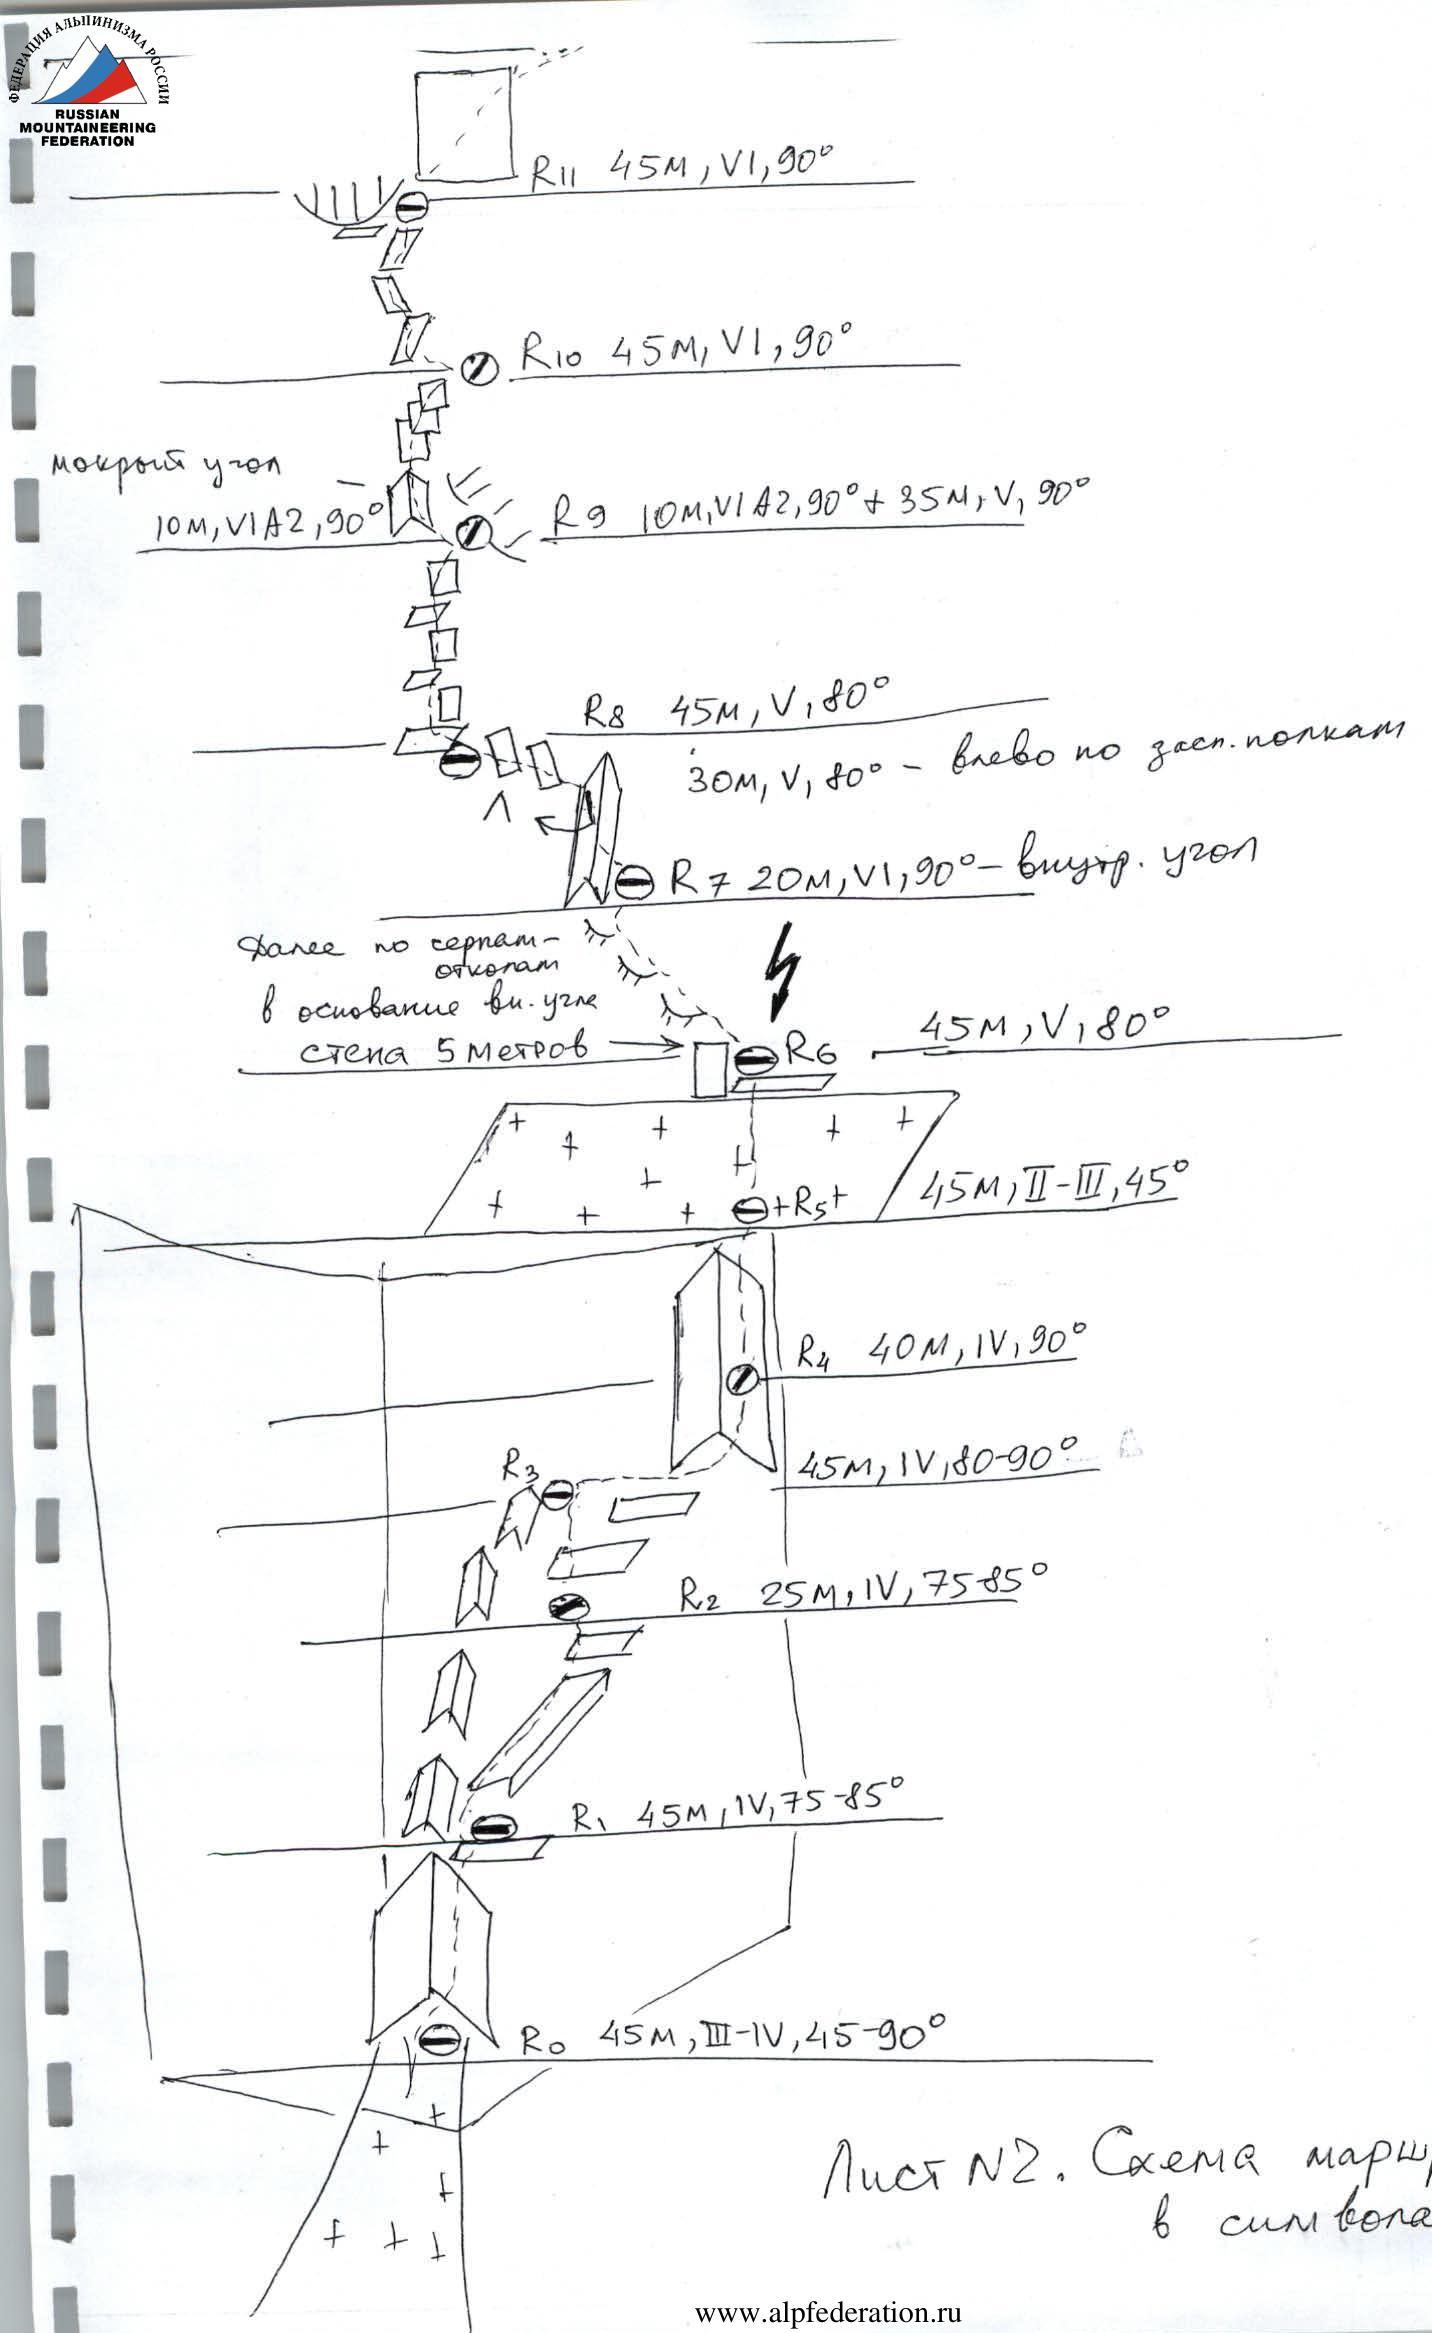 ФЕДЕРАЦИЯ АЛЬПИНИЗМА РОССИИ
RUSSIAN
MOUNTAINEERING
FEDERATION
R11 45м, VI, 90°
R10 45м, VI, 90°
мокрый угол
10м, VI A2, 90°
R9 10м, VI A2, 90° + 35м, V, 90°
R8 45м, V, 80°
30м, V, 80° – влево по засп. полкам
Л
R7 20м, VI, 90° – внутр. угол
Далее по серпам-
отколам
в основание вн. угла
стена 5 метров
R6 45м, V, 80°
R5 45м, II-III, 45°
R4 40м, IV, 90°
R3 45м, IV, 80-90°
R2 25м, IV, 75-85°
R1 45м, IV, 75-85°
R0 45м, III-IV, 45-90°
Лист N2. Схема марш
в символа
www.alpfederation.ru